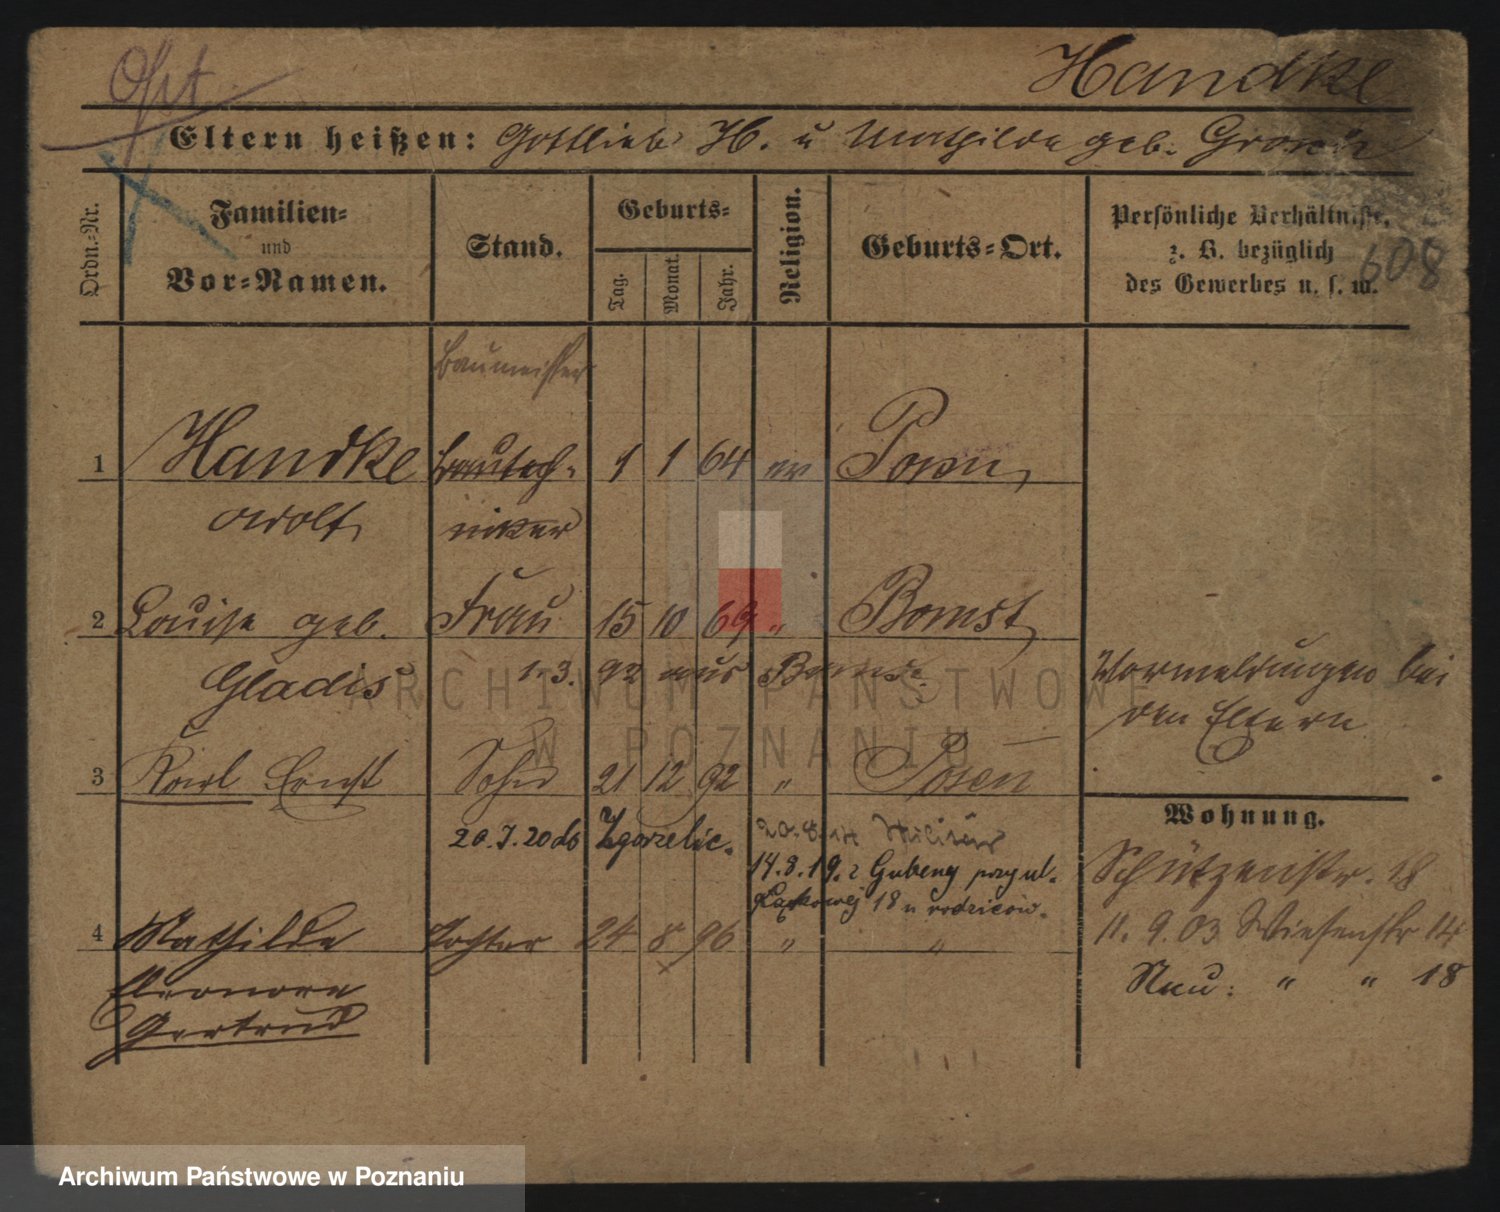 Handke
Eltern heißen: Gottlieb H. u Mathilde geb.
Ordn.-Nr.
Familien-
und
Vor-Namen.
Stand.
Geburts-
Tag.
Monat.
Jahr.
Religion.
Geburts-Ort.
Persönliche Verhältnisse,
z. B. bezüglich
des Gewerbes u. s. w.
608
Baumeister
1 Handke Bautech- 1 1 64 ev Posen
Adolf niker
2 Louise geb. Frau 15 10 69 " Bomst
Gladis 1.3. 92 aus Bomst
Vormeldungen bei
den Eltern
3 Karl Ernst Sohn 21 12 92 " Posen
20.7.20 do Zgorzelic.
20.8.14 Militär
14.8.19. z Gubeny przy ul.
Łąkowej 18 u rodziców.
4 Mathilde Tochter 24 8 96 " "
Eleonore
Gertrud
Wohnung.
Schützenstr. 18
11. 9. 03 Wiesenstr 14
Neu: " " 18
ARCHIWUM PAŃSTWOWE
W POZNANIU
Archiwum Państwowe w Poznaniu